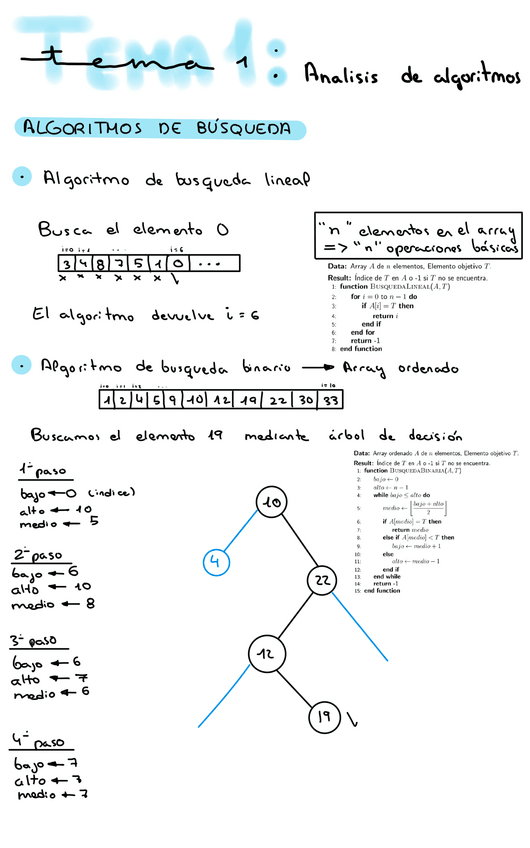 Tema 1:
tema 1: Analisis de algoritmos
ALGORITMOS DE BÚSQUEDA
• Algoritmo de busqueda lineal
Busca el elemento 0
i=0 i=1 ... i=6
3 4 8 7 5 1 0 ...
x x x x x x
"n" elementos en el array
=> "n" operaciones básicas
El algoritmo devuelve i = 6
Data: Array A de n elementos, Elemento objetivo T.
Result: Índice de T en A o -1 si T no se encuentra.
1: function BUSQUEDALINEAL(A, T)
2: for i = 0 to n − 1 do
3: if A[i] = T then
4: return i
5: end if
6: end for
7: return -1
8: end function
• Algoritmo de busqueda binario → Array ordenado
i=0 i=1 i=2 ... i=10
1 2 4 5 9 10 12 19 22 30 33
Buscamos el elemento 19 mediante árbol de decisión
1º paso
bajo ← 0 (indice)
alto ← 10
medio ← 5
2º paso
bajo ← 6
alto ← 10
medio ← 8
3º paso
bajo ← 6
alto ← 7
medio ← 6
4º paso
bajo ← 7
alto ← 7
medio ← 7
10
4
22
12
19
Data: Array ordenado A de n elementos, Elemento objetivo T.
Result: Índice de T en A o -1 si T no se encuentra.
1: function BUSQUEDABINARIA(A, T)
2: bajo ← 0
3: alto ← n − 1
4: while bajo ≤ alto do
5: medio ← ⌊(bajo + alto)/2⌋
6: if A[medio] = T then
7: return medio
8: else if A[medio] < T then
9: bajo ← medio + 1
10: else
11: alto ← medio − 1
12: end if
13: end while
14: return -1
15: end function